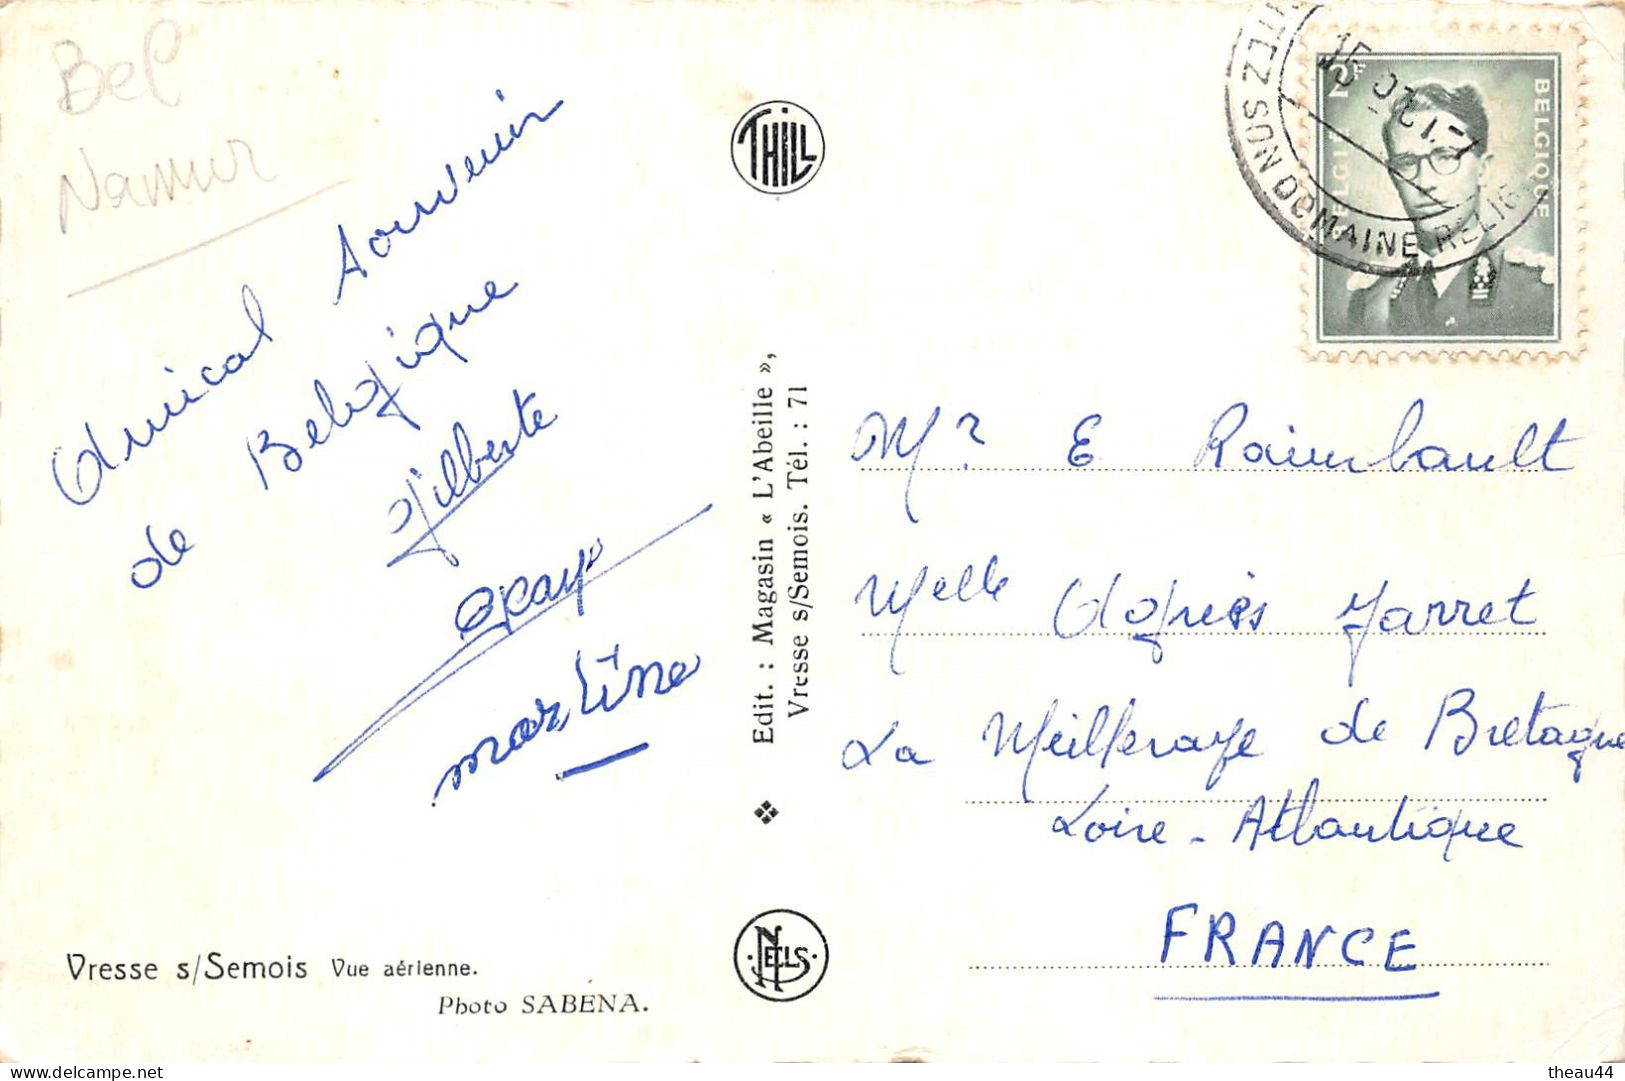 Bel
Namur
Amical Souvenir
de Belgique
Gilberte
martine
Vresse s/Semois Vue aérienne.
Photo SABENA.
THILL
Edit. : Magasin « L'Abeille »,
Vresse s/Semois. Tél. : 71
NELS
TEZ NOS DOMAINE RELIG
BELGIE 2F BELGIQUE
Mr E Raimbault
Melle Agnès Jarret
La Meilleraye de Bretagne
Loire-Atlantique
FRANCE
theau44
delcampe.net